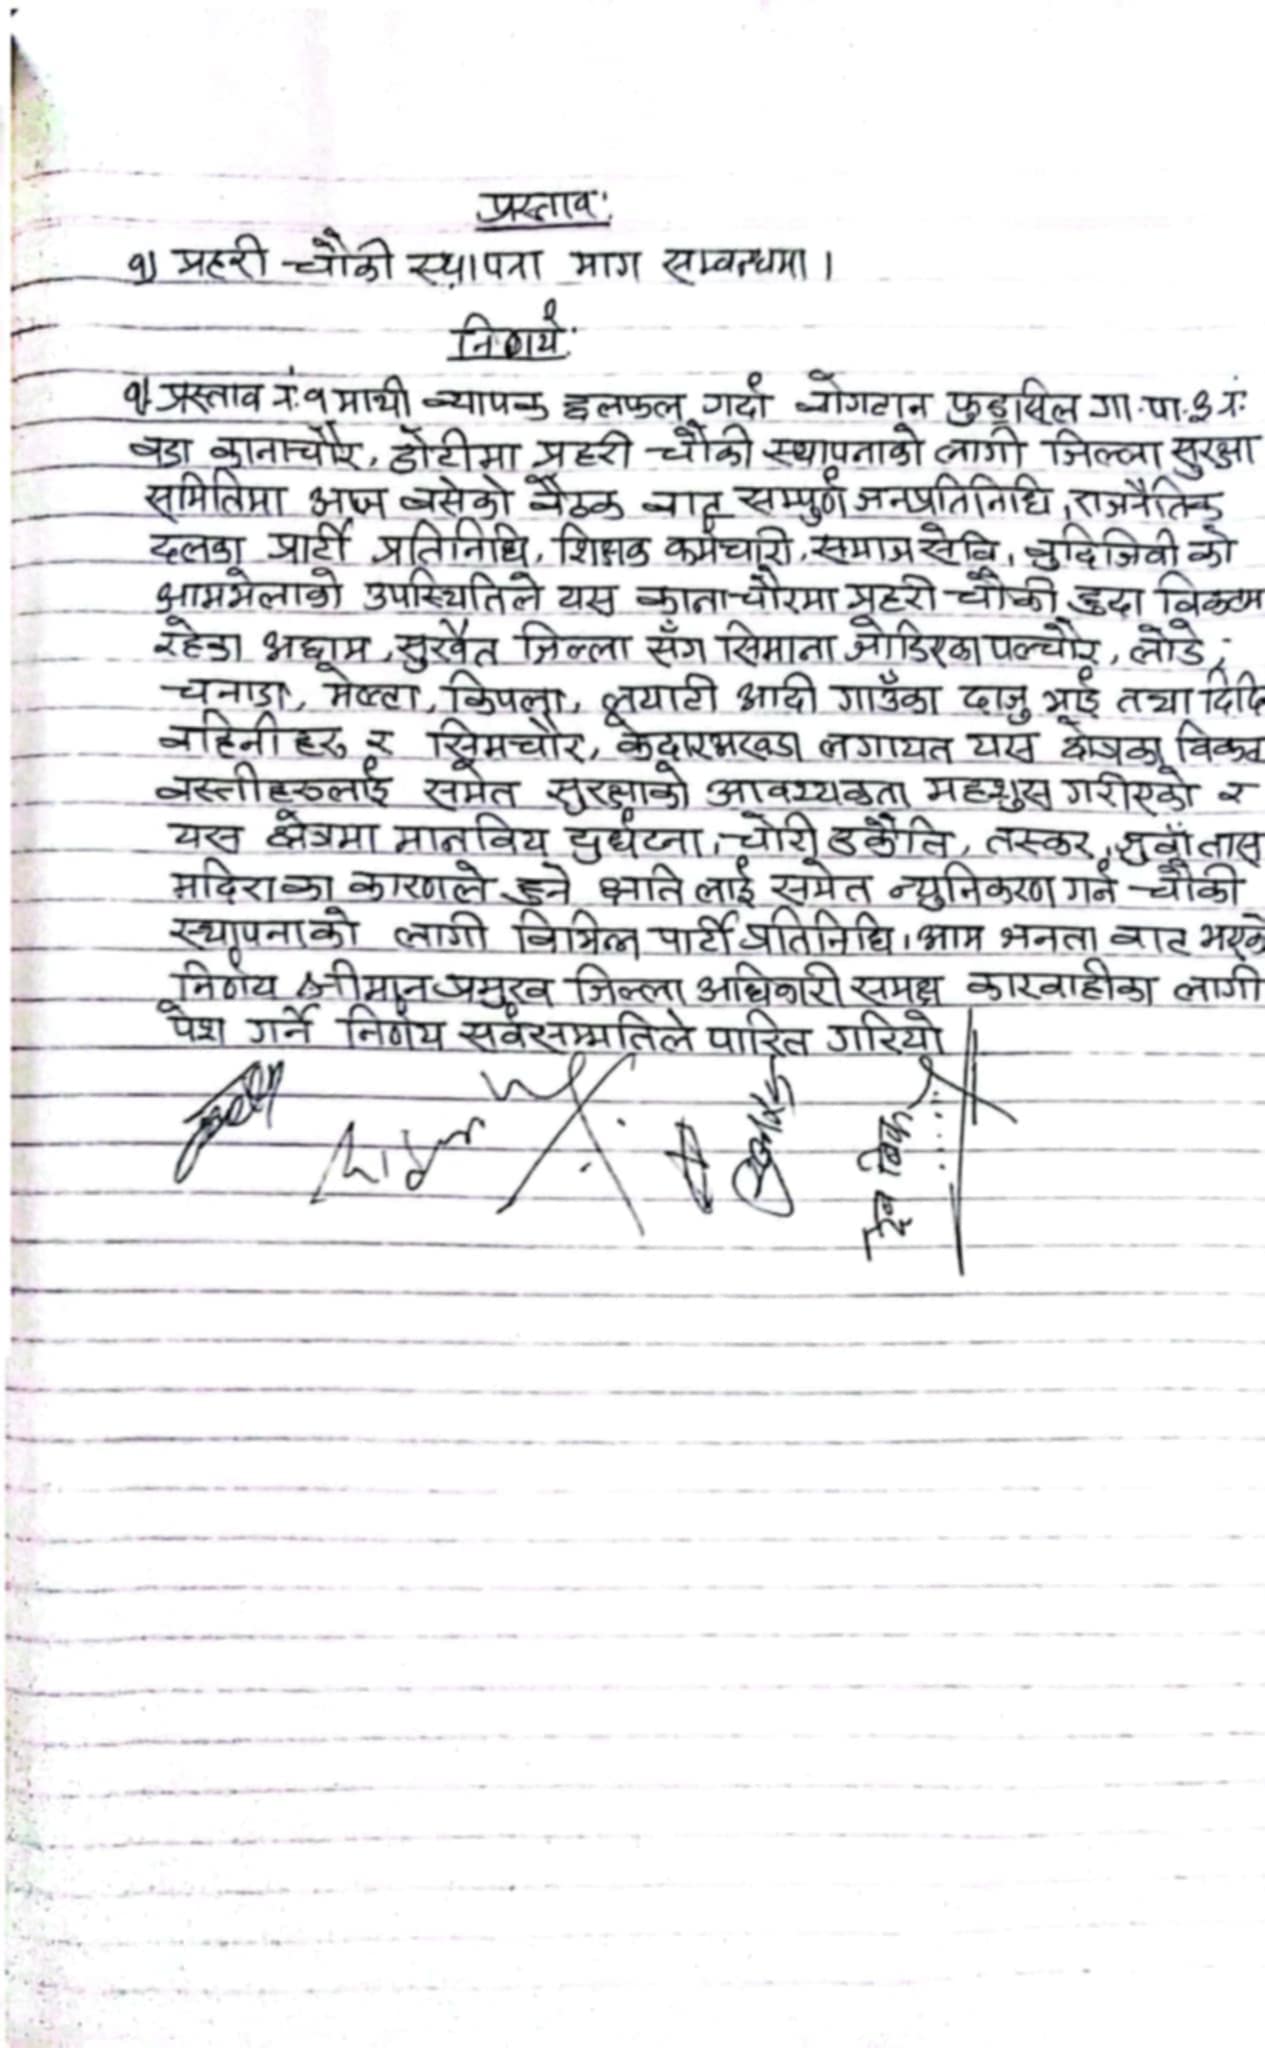 प्रस्तावः
१) प्रहरी चौकी स्थापना माग सम्वन्धमा।
निर्णयः
१) प्रस्ताव नं. १ माथी व्यापक छलफल गर्दा वोगटान फुड्सिल गा.पा. ३ नं.
वडा कानाचौर, डोटीमा प्रहरी चौकी स्थापनाको लागी जिल्ला सुरक्षा
समितिमा आज वसेको वैठक वाट सम्पुर्ण जनप्रतिनिधि, राजनैतिक
दलका पार्टी प्रतिनिधि, शिक्षक कर्मचारी, समाज सेवि, वुद्दिजिवी को
आमभेलाको उपस्थितिले यस कानाचौरमा प्रहरी चौकी हुदा विकटमा
रहेका अछाम, सुर्खेत जिल्ला सँग सिमाना जोडिएका पल्चौर, लोडे,
चनाडा, मेल्टा, किपला, आदी गाउँका दाजु भाई तथा दिदि
वहिनी हरु र सिमचौर, केदारअखडा लगायत यस क्षेत्रका विकट
वस्तीहरुलाई समेत सुरक्षाको आवश्यकता महशुस गरीएको र
यस क्षेत्रमा मानविय दुर्घटना, चोरी डकैति, तस्कर, जुवाँ तास
मदिराका कारणले हुने क्षति लाई समेत न्युनिकरण गर्न चौकी
स्थापनाको लागी विभिन्न पार्टी प्रतिनिधि, आम जनता वाट भएको
निर्णय श्रीमान प्रमुख जिल्ला अधिकारी समक्ष कारवाहीका लागी
पेश गर्ने निर्णय सर्वसम्मतिले पारित गरियो